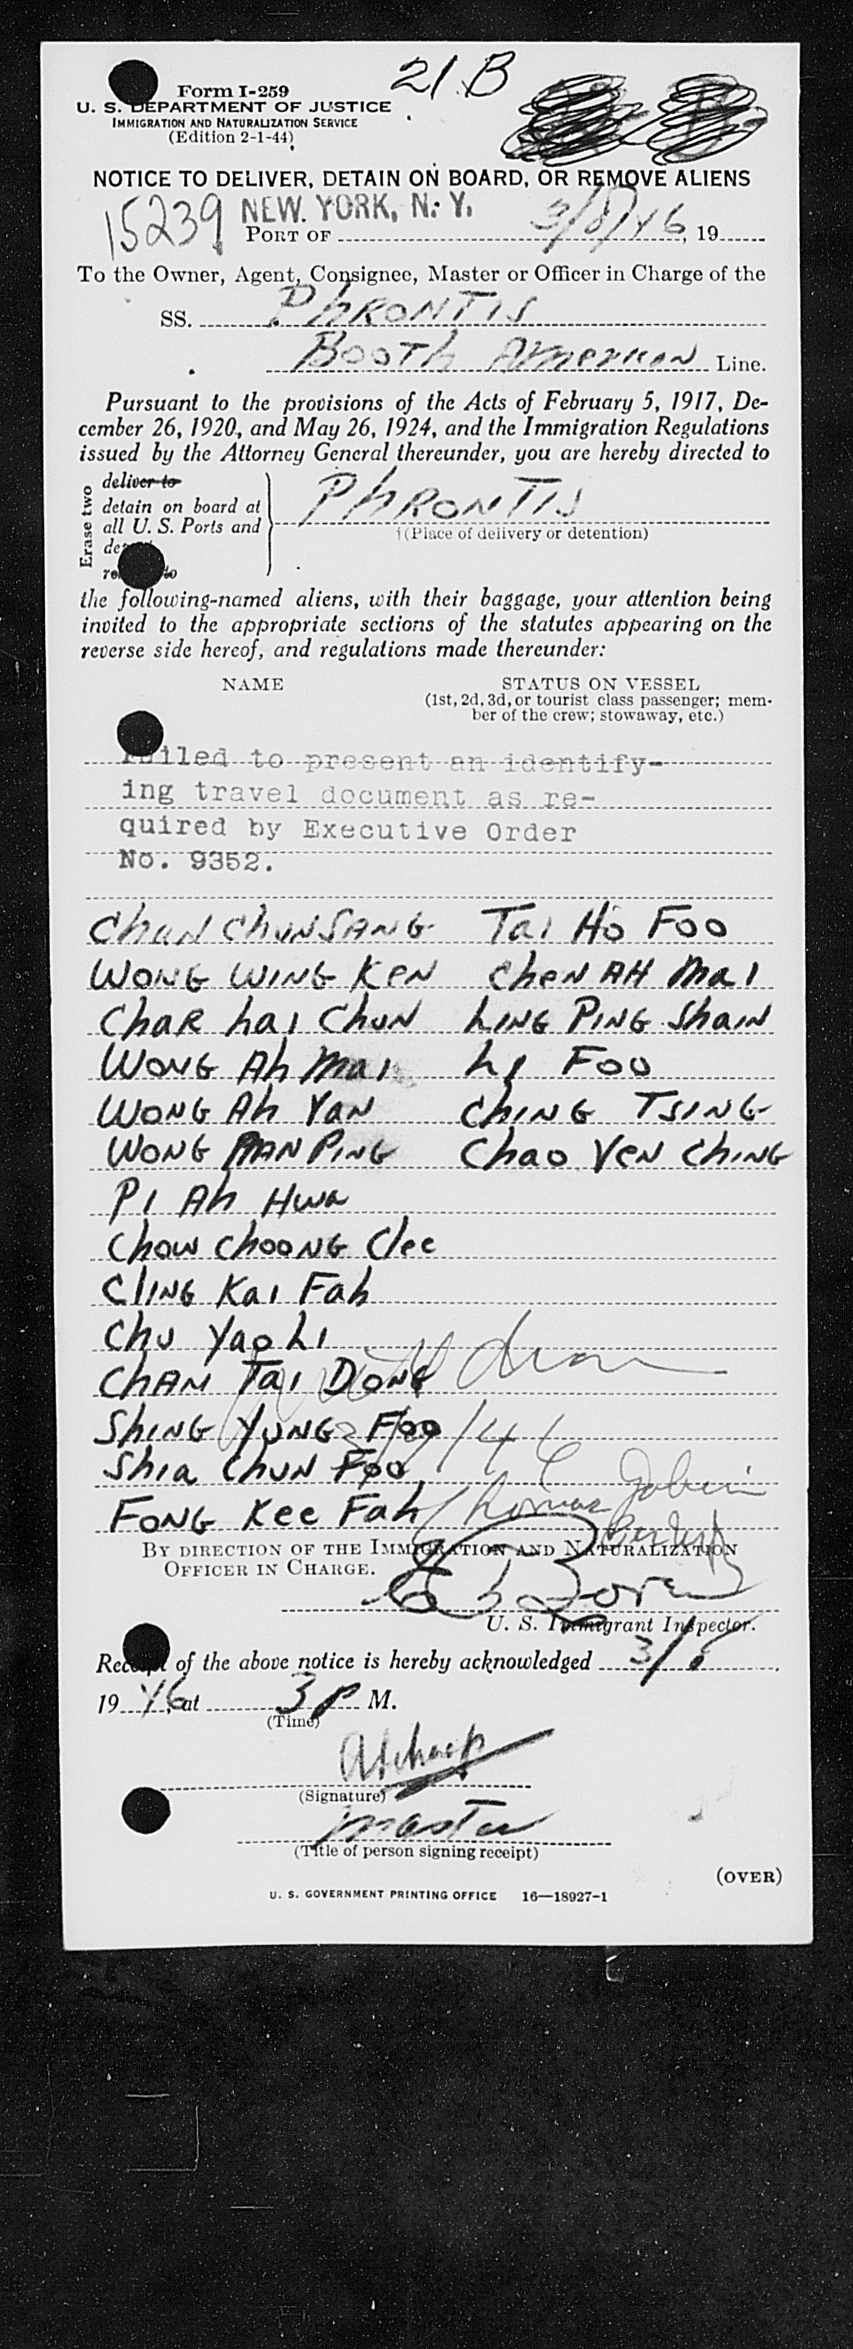 21 B
Form I-259
U. S. DEPARTMENT OF JUSTICE
IMMIGRATION AND NATURALIZATION SERVICE
(Edition 2-1-44)
NOTICE TO DELIVER, DETAIN ON BOARD, OR REMOVE ALIENS
15239 NEW YORK, N. Y.
PORT OF 3/8/46, 19
To the Owner, Agent, Consignee, Master or Officer in Charge of the
SS. PhRONTIS
Booth American Line.
Pursuant to the provisions of the Acts of February 5, 1917, De-
cember 26, 1920, and May 26, 1924, and the Immigration Regulations
issued by the Attorney General thereunder, you are hereby directed to
Erase two
deliver to
detain on board at
all U. S. Ports and
PhRONTIS
(Place of delivery or detention)
the following-named aliens, with their baggage, your attention being
invited to the appropriate sections of the statutes appearing on the
reverse side hereof, and regulations made thereunder:
NAME STATUS ON VESSEL
(1st, 2d, 3d, or tourist class passenger; mem-
ber of the crew; stowaway, etc.)
Failed to present an identify-
ing travel document as re-
quired by Executive Order
No. 9352.
Chun ChunSANG Tai Ho Foo
WONG WING KeN CheN AH Mai
ChaR hai ChuN LING PING ShaiN
WONG Ah Mai Li Foo
WONG Ah YaN ChING TSING
WONG MAN PING Chao YeN ChING
Pi Ah Hwa
Chow ChooNG Clee
ClING Kai Fah
Chu Yao Li
ChAN Tai DONG
ShING YUNG Foo
Shia ChuN Foo
FONG Kee Fah
BY DIRECTION OF THE IMMIGRATION AND NATURALIZATION
OFFICER IN CHARGE.
U. S. Immigrant Inspector.
Receipt of the above notice is hereby acknowledged 3/8,
1946, at 3 P M.
(Time)
(Signature)
Master
(Title of person signing receipt)
(OVER)
U. S. GOVERNMENT PRINTING OFFICE 16—18927-1